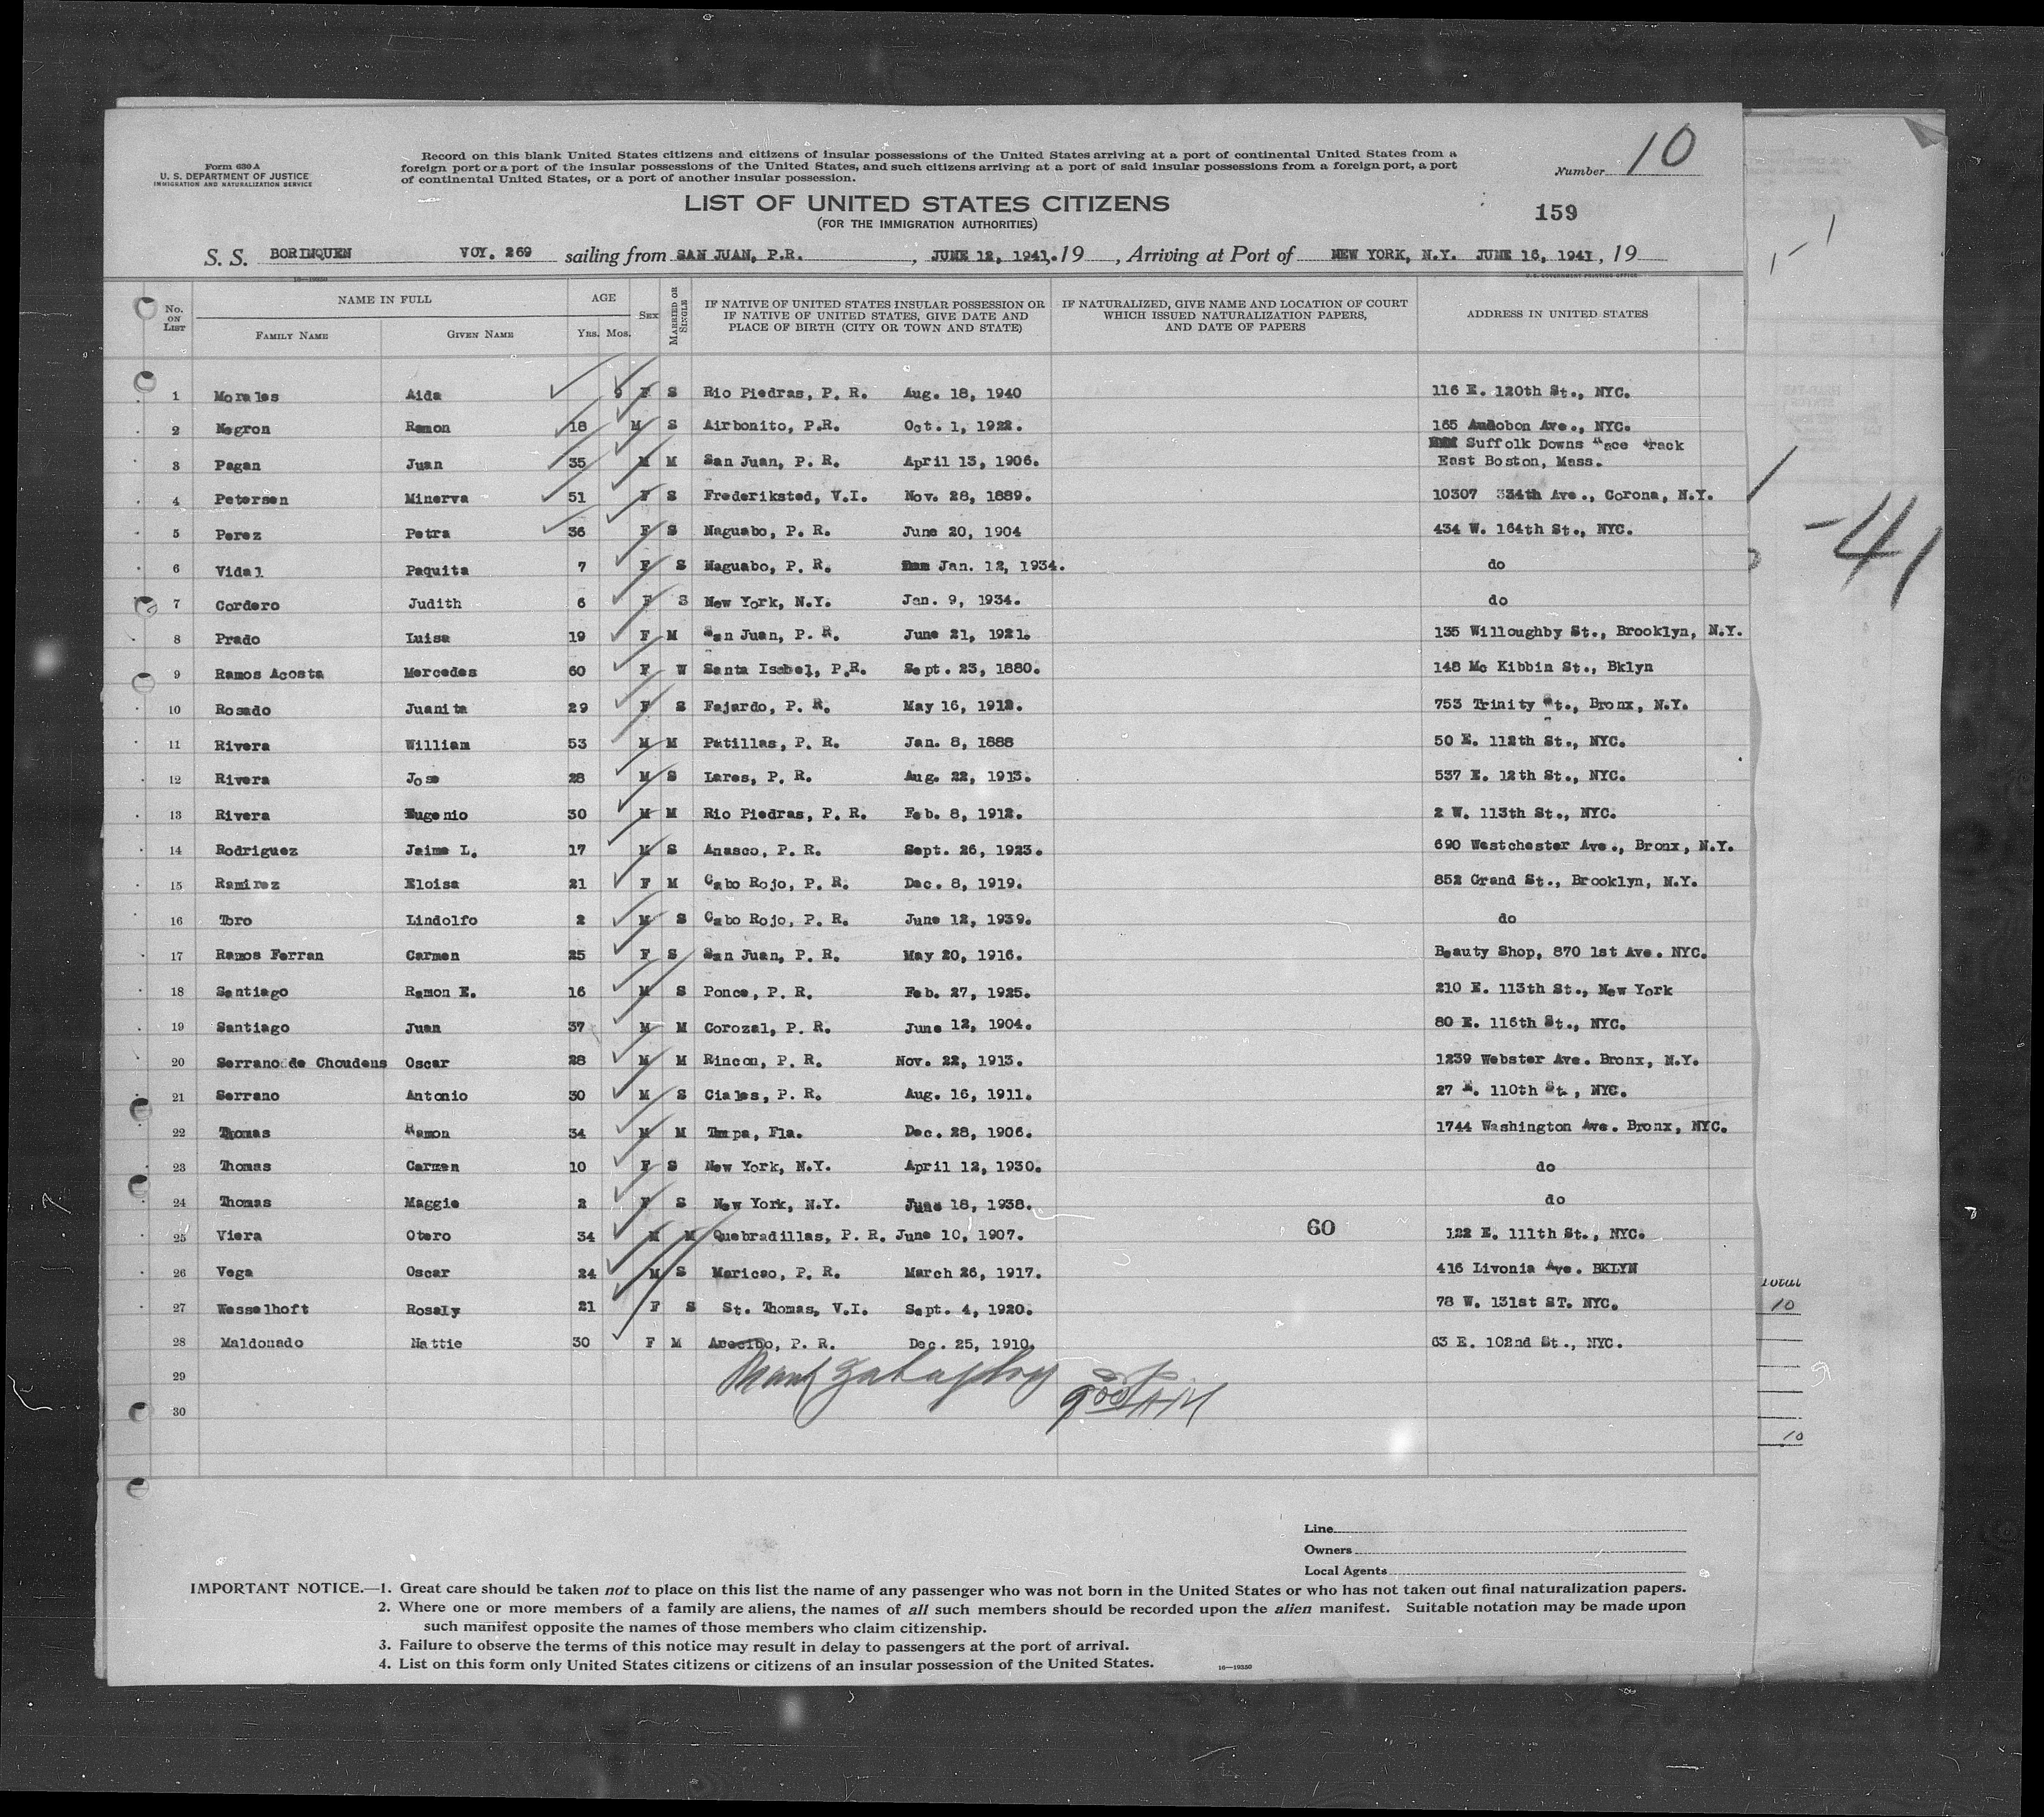 Form 630 A
U. S. DEPARTMENT OF JUSTICE
IMMIGRATION AND NATURALIZATION SERVICE
Record on this blank United States citizens and citizens of insular possessions of the United States arriving at a port of continental United States from a
foreign port or a port of the insular possessions of the United States, and such citizens arriving at a port of said insular possessions from a foreign port, a port
of continental United States, or a port of another insular possession.
Number 10
LIST OF UNITED STATES CITIZENS
(FOR THE IMMIGRATION AUTHORITIES)
159
S. S. BORINQUEN VOY. 269 sailing from SAN JUAN, P.R. , JUNE 12, 1941, 19 , Arriving at Port of NEW YORK, N.Y. JUNE 16, 1941, 19
16—19350
U. S. GOVERNMENT PRINTING OFFICE
No. ON LIST
NAME IN FULL
FAMILY NAME GIVEN NAME
AGE
Yrs. Mos.
SEX
MARRIED OR SINGLE
IF NATIVE OF UNITED STATES INSULAR POSSESSION OR
IF NATIVE OF UNITED STATES, GIVE DATE AND
PLACE OF BIRTH (CITY OR TOWN AND STATE)
IF NATURALIZED, GIVE NAME AND LOCATION OF COURT
WHICH ISSUED NATURALIZATION PAPERS,
AND DATE OF PAPERS
ADDRESS IN UNITED STATES
1 Morales Aida 9 F S Rio Piedras, P. R. Aug. 18, 1940 116 E. 120th St., NYC.
2 Negron Ramon 18 M S Airbonito, P.R. Oct. 1, 1922. 165 Audobon Ave., NYC.
Suffolk Downs Race Track
3 Pagan Juan 35 M M San Juan, P. R. April 13, 1906. East Boston, Mass.
4 Petersen Minerva 51 F S Frederiksted, V.I. Nov. 28, 1889. 10307 334th Ave., Corona, N.Y.
5 Perez Petra 36 F S Naguabo, P. R. June 20, 1904 434 W. 164th St., NYC.
6 Vidal Paquita 7 F S Naguabo, P. R. Jan. 12, 1934. do
7 Cordero Judith 6 F S New York, N.Y. Jan. 9, 1934. do
8 Prado Luisa 19 F M San Juan, P. R. June 21, 1921. 135 Willoughby St., Brooklyn, N.Y.
9 Ramos Acosta Mercedes 60 F W Santa Isabel, P.R. Sept. 23, 1880. 148 Mc Kibbin St., Bklyn
10 Rosado Juanita 29 F S Fajardo, P. R. May 16, 1912. 753 Trinity St., Bronx, N.Y.
11 Rivera William 53 M M Patillas, P. R. Jan. 8, 1888 50 E. 112th St., NYC.
12 Rivera Jose 28 M S Lares, P. R. Aug. 22, 1913. 537 E. 12th St., NYC.
13 Rivera Eugenio 30 M M Rio Piedras, P. R. Feb. 8, 1912. 2 W. 113th St., NYC.
14 Rodriguez Jaime L. 17 M S Anasco, P. R. Sept. 26, 1923. 690 Westchester Ave., Bronx, N.Y.
15 Ramirez Eloisa 21 F M Cabo Rojo, P. R. Dec. 8, 1919. 852 Grand St., Brooklyn, N.Y.
16 Toro Lindolfo 2 M S Cabo Rojo, P. R. June 12, 1939. do
17 Ramos Ferran Carmen 25 F S San Juan, P. R. May 20, 1916. Beauty Shop, 870 1st Ave. NYC.
18 Santiago Ramon E. 16 M S Ponce, P. R. Feb. 27, 1925. 210 E. 113th St., New York
19 Santiago Juan 37 M M Corozal, P. R. June 12, 1904. 80 E. 116th St., NYC.
20 Serrano de Choudens Oscar 28 M M Rincon, P. R. Nov. 22, 1913. 1239 Webster Ave. Bronx, N.Y.
21 Serrano Antonio 30 M S Ciales, P. R. Aug. 16, 1911. 27 E. 110th St., NYC.
22 Thomas Ramon 34 M M Tmpa, Fla. Dec. 28, 1906. 1744 Washington Ave. Bronx, NYC.
23 Thomas Carmen 10 F S New York, N.Y. April 12, 1930. do
24 Thomas Maggie 2 F S New York, N.Y. June 18, 1938. do
25 Viera Otero 34 M M Quebradillas, P. R. June 10, 1907. 60 122 E. 111th St., NYC.
26 Vega Oscar 24 M S Maricao, P. R. March 26, 1917. 416 Livonia Ave. BKLYN
27 Wesselhoft Rosaly 21 F S St. Thomas, V.I. Sept. 4, 1920. 78 W. 131st ST. NYC.
28 Maldonado Nattie 30 F M Arecibo, P. R. Dec. 25, 1910. 63 E. 102nd St., NYC.
29
30
-41
Total
10
10
Line
Owners
Local Agents
IMPORTANT NOTICE.—1. Great care should be taken not to place on this list the name of any passenger who was not born in the United States or who has not taken out final naturalization papers.
2. Where one or more members of a family are aliens, the names of all such members should be recorded upon the alien manifest. Suitable notation may be made upon
such manifest opposite the names of those members who claim citizenship.
3. Failure to observe the terms of this notice may result in delay to passengers at the port of arrival.
4. List on this form only United States citizens or citizens of an insular possession of the United States.
16—19350